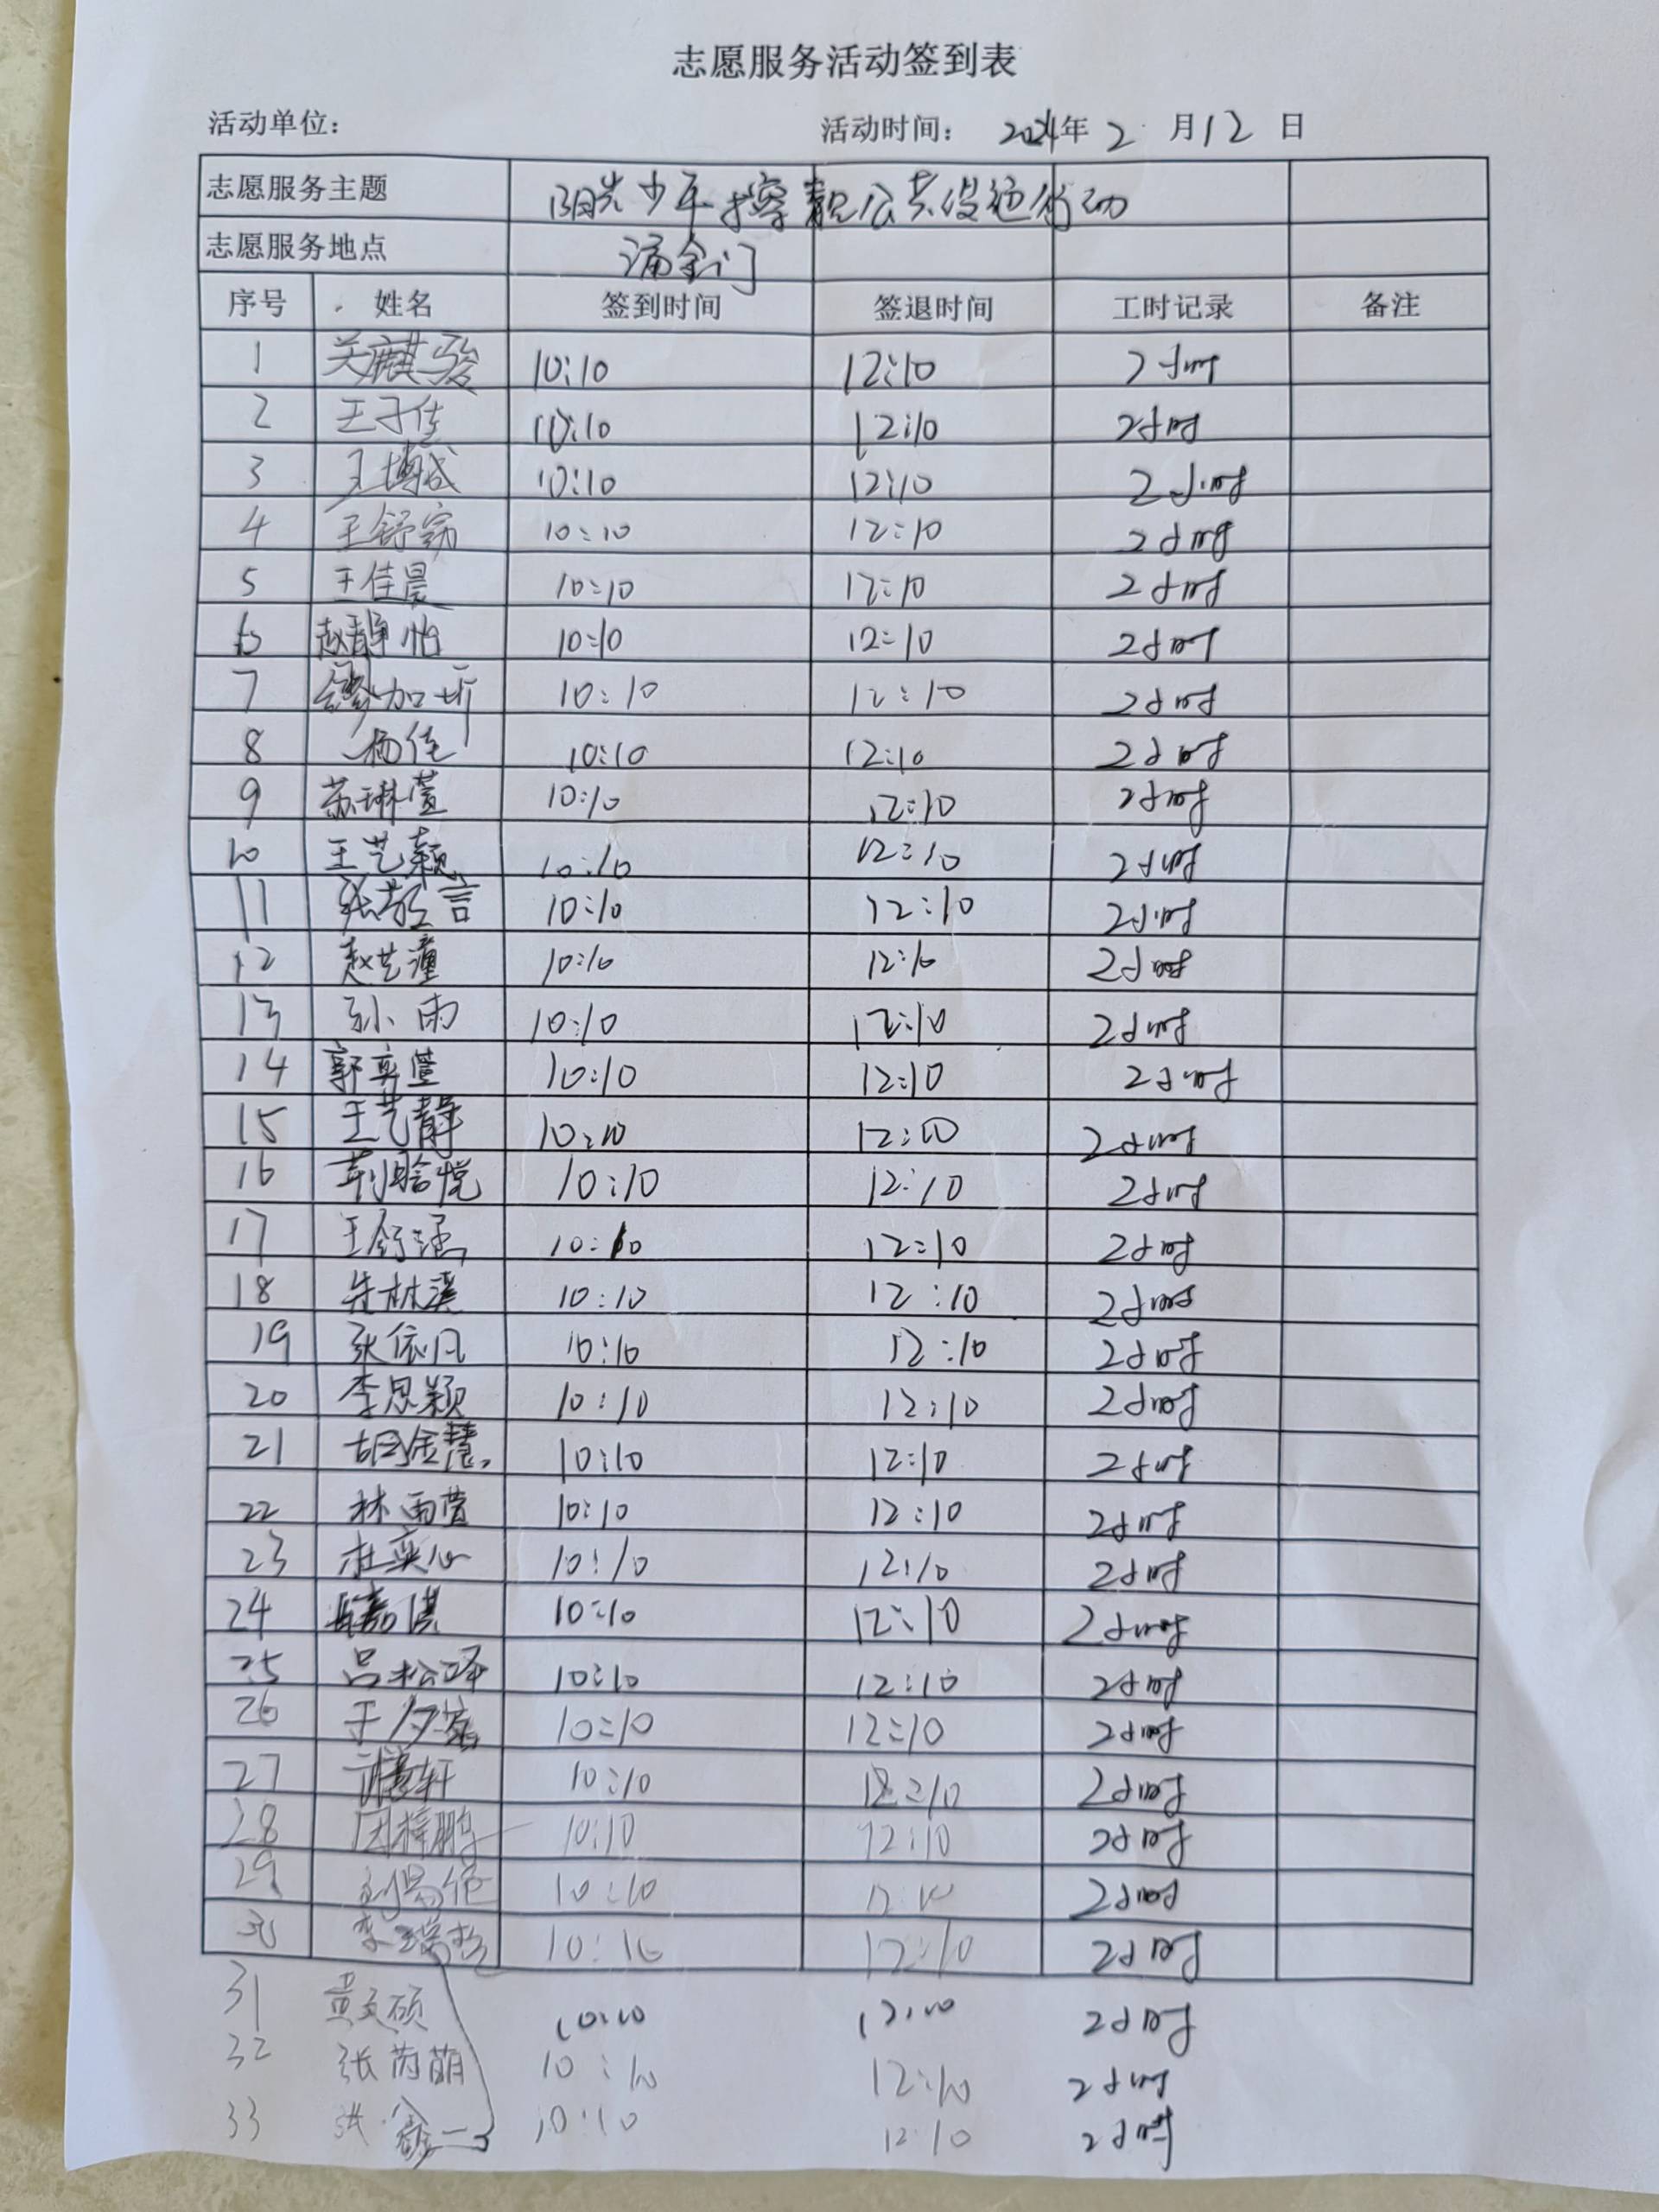 志愿服务活动签到表
活动单位： 活动时间： 2024年 2 月 12 日
志愿服务主题 阳光少年擦靓公共设施行动
志愿服务地点 涌金门
序号 姓名 签到时间 签退时间 工时记录 备注
1 关麒骏 10:10 12:10 2小时
2 王子佳 10:10 12:10 2小时
3 王博成 10:10 12:10 2小时
4 王舒 10:10 12:10 2小时
5 王佳晨 10:10 12:10 2小时
6 赵静怡 10:10 12:10 2小时
7 加圻 10:10 12:10 2小时
8 杨佳 10:10 12:10 2小时
9 苏琳萱 10:10 12:10 2小时
10 王艺颖 10:10 12:10 2小时
11 张敬言 10:10 12:10 2小时
12 赵艺潼 10:10 12:10 2小时
13 孙雨 10:10 12:10 2小时
14 郭奕萱 10:10 12:10 2小时
15 王艺静 10:10 12:10 2小时
16 悦 10:10 12:10 2小时
17 王舒涵 10:10 12:10 2小时
18 朱林溪 10:10 12:10 2小时
19 张依凡 10:10 12:10 2小时
20 李思颖 10:10 12:10 2小时
21 胡金慧 10:10 12:10 2小时
22 林雨萱 10:10 12:10 2小时
23 杜奕心 10:10 12:10 2小时
24 嘉淇 10:10 12:10 2小时
25 吕松泽 10:10 12:10 2小时
26 于夕 10:10 12:10 2小时
27 轩 10:10 12:10 2小时
28 梓鹏 10:10 12:10 2小时
29 刘易 10:10 12:10 2小时
30 李瑞 10:10 12:10 2小时
31 黄文硕 10:10 12:10 2小时
32 张芮萌 10:10 12:10 2小时
33 洪鑫一 10:10 12:10 2小时